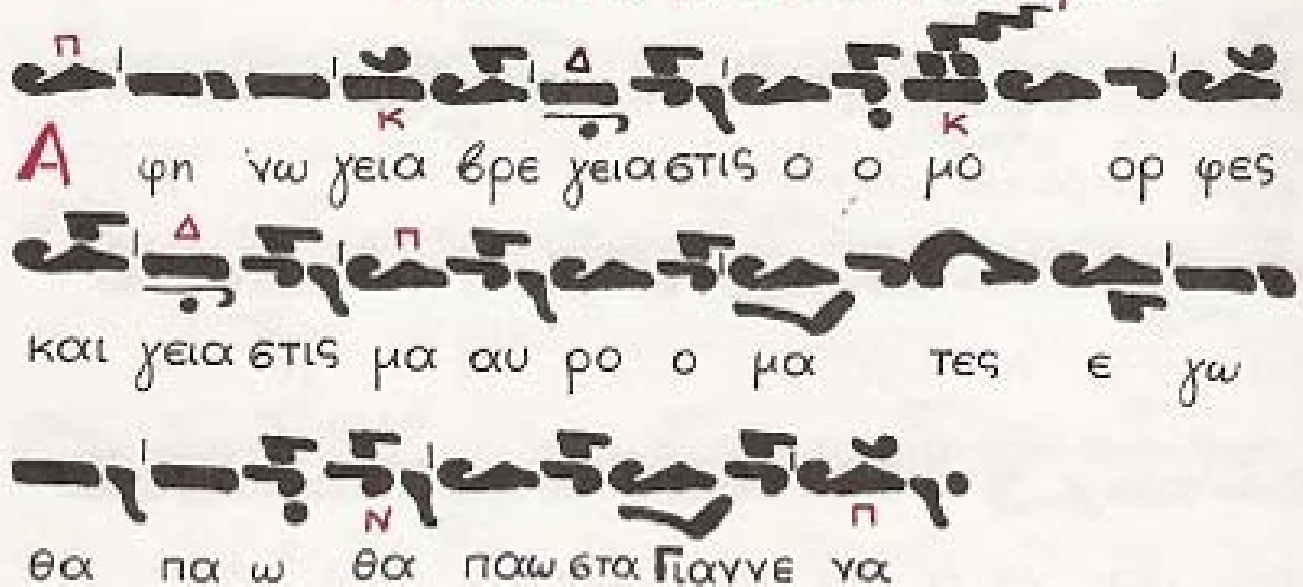 π Δ
κ κ
Α φη νω γεια βρε γεια στις ο ο μο ορ φες
Δ π
και γεια στις μα αυ ρο ο μα τες ε γω
Ν π
θα πα ω θα παω στα Γιαννε να